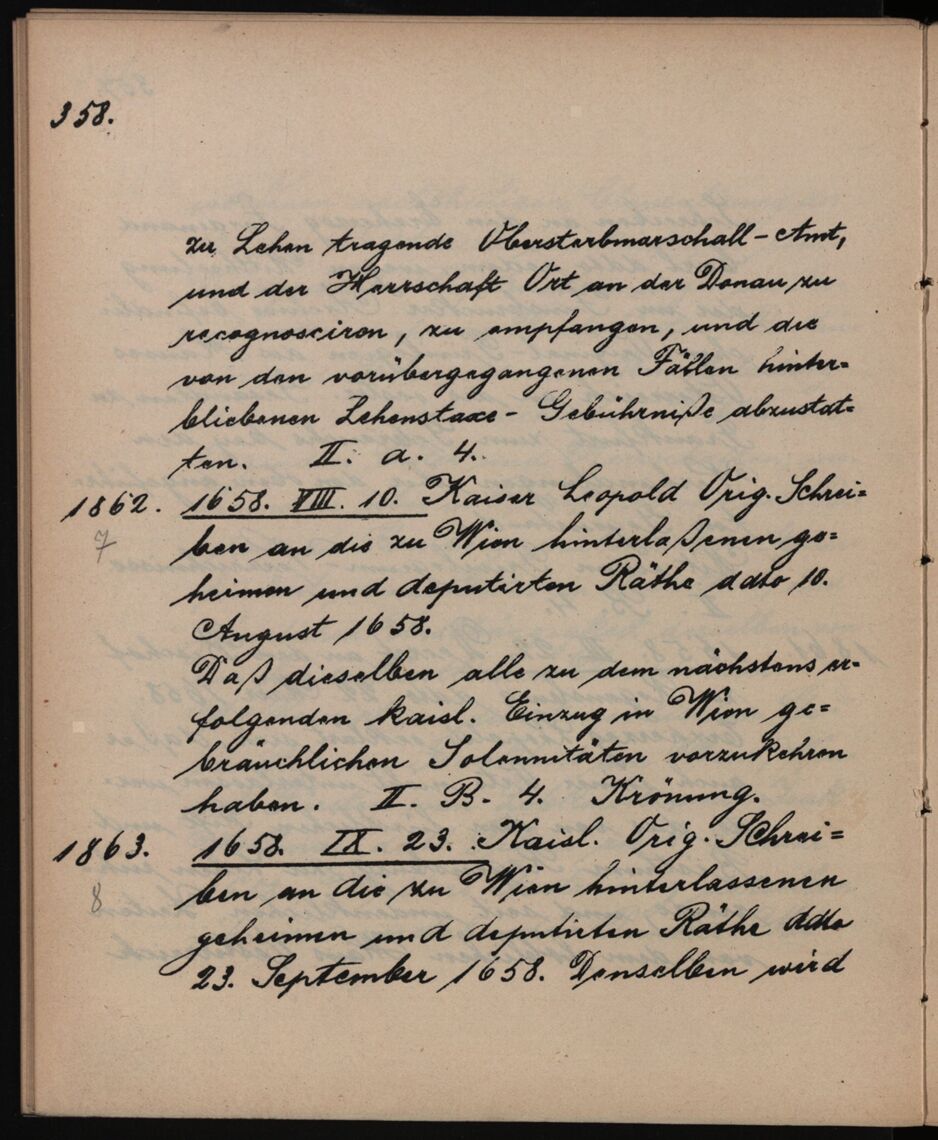 358.
zu Lehen tragende Obersterbmarschall-Amt,
und der Herrschaft Ort an der Donau zu
recognosciren, zu empfangen, und die
von den vorübergegangenen Fällen hinter=
bliebenen Lehenstaxe-Gebührniße abzustat=
ten. II. a. 4.
1862. 1658. VIII. 10. Kaiser Leopold Orig. Schrei=
7 ben an die zu Wien hinterlaßenen ge=
heimen und deputirten Räthe ddto 10.
August 1658.
Daß dieselben alle zu dem nächstens er-
folgenden kaisl. Einzug in Wien ge=
bräuchlichen Solennitäten vorzukehren
haben. II. B. 4. Krönung.
1863. 1658. IX. 23. Kaisl. Orig. Schrei=
8 ben an die zu Wien hinterlassenen
geheimen und deputirten Räthe ddto
23. September 1658. Denselben wird